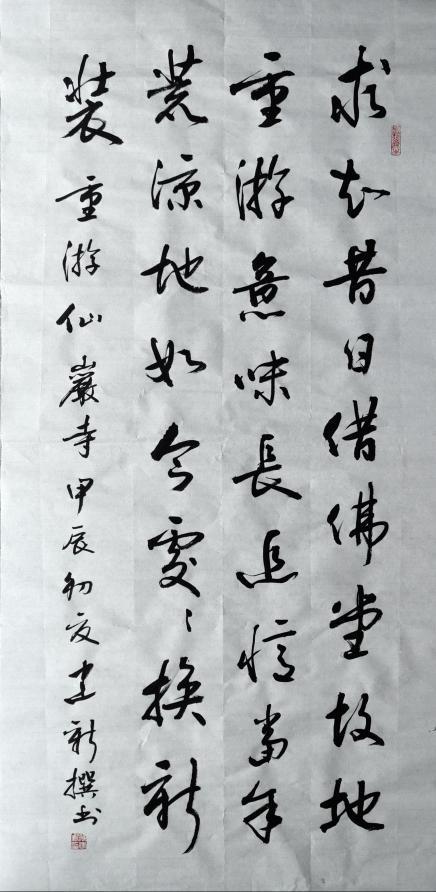 求知昔日借佛堂故地
重游意味長追憶當年
荒涼地如今處處換新
裝 重游仙巖寺甲辰初夏建新撰書